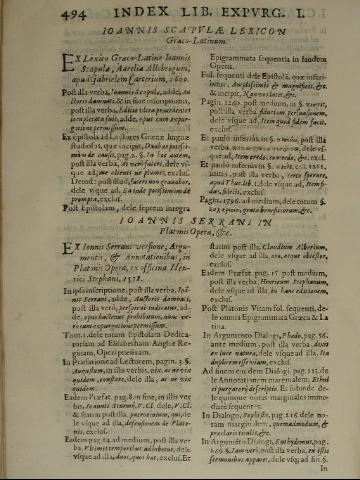 494 INDEX LIB. EXPVRG. I.
IOANNIS SCAPVLÆ LEXICON
Græco-Latinum.
EX Lexico Græco-Latino Ioannis
Scapulæ, Aureliæ Allobrogum,
apud Gabrielem Carterium, 1609.
Post illa verba, Ioannis Scapulæ, adde, Au
ctoris damnati; & in fine inscriptionis,
post verba, Editio
completa & suis, adde, opus cum expur-
gatione permissum.
Ex epistola ad Lectores Græcæ linguæ
studiosos, quæ incipit, Duabus potissi-
mùm de causis, pag. 2. §. In hoc autem,
post illa verba, & enim facilè, dele vs-
que ad, me alienis vt plumis, exclus.
Deinde post illud, facere non grauabor,
dele vsque ad, Et unde potissimùm de
prompta, exclus.
Post Epistolam, dele septem integra
Epigrammata sequentia in laudem
Operis.
Fol. sequenti dele Epistolã, quæ inscri-
bitur, Amplissimis & magnificis, &c.
& incipit,
Pagin. 1240. post medium, in
post illa verba, fidutiam persuasionem,
dele vsque ad, Item quod fidem facit,
exclus.
Et paulò inferiùs in §. post illa
verba, dele vs-
que ad, Item credo, concredo, & c. excl.
Et paulò inferiùs in §. col. 1281.
initio, post illa verba, veris sperare,
apud Thuc. lib. 1. dele vsque ad, Item fi-
dus, fidelis, exclus.
Pagin. 1796. ad medium, dele totum §.
gratia beneficiorum, &c.
IOANNIS SERRANI IN
Platonis Opera, &c.
EX Ionnis Serrani versione, Argu-
mentis, & Annotationibus, in
Platonis Opera, ex officina Hen-
rici Stephani, 1578.
In ipsa inscriptione, post illa verba, Ioan-
nis Serrani, adde, Auctoris damnati;
post illa verò, perspicuè indicatur, ad-
de, opus hactenus prohibitum, nunc ve-
rò cum expurgatione permissum.
Tom. 1. dele totam Epistolam Dedica-
toriam ad Elisabetham Angliæ Re-
ginam, Operi præfixam.
In Præfatione ad Lectorem, pagin. 3. §.
Augustum, in illis verbis, vix, ac ne vix
quidem, rempte, dele illa, ac ne vix
quidem.
Eadem Præfat. pag. 8. in fine, in illis ver
bis, Ioannis Sturmij, V. cl. dele, V. cl.
& statim post illa, patrocinium, vel, de
le vsque ad illa, defensionem de Plato-
nis, exclus.
Eadem pag. 14. ad medium, post illa ver
ba, Vltimis temporibus adhibetur, dele
vsque ad illa, duos, quos huc, exclus. Et
statim post illa, Claudium Alberium,
dele vsque ad illa, ora, atque obiectæ,
exclus.
Eadem Præfat. pag. 15. post medium,
post illa verba, Henricum Stephanum,
dele vsque ad illa, in hanc editionem,
exclus.
Post Platonis Vitam fol. sequenti, de-
le omnia Epigrammata Græca & La
tina.
In Argumento Dialogi, Phædo, pag. 56.
ante medium, post illa verba, dicit
ex luce natura, dele vsque ad illa, Ita
duplicem vsserviam, exclus.
Ad finem eiusdem Dialogi, pag. 113. de
le Annotationem marginalem, Ethni
ci purgatorij descriptio. Et subinde de-
le quinque notas marginales immo-
diatè sequentes.
In Dialogo, Politico, pag. 216. dele no-
tam marginalem, quemadmodum, &
præclaris titulis, &c.
In Argumẽto Dialogi, Euthydemus, pag.
269. §. Iam verò, post illa verba, ex istis
sermonibus appares, dele vsq; ad fin. §.
In